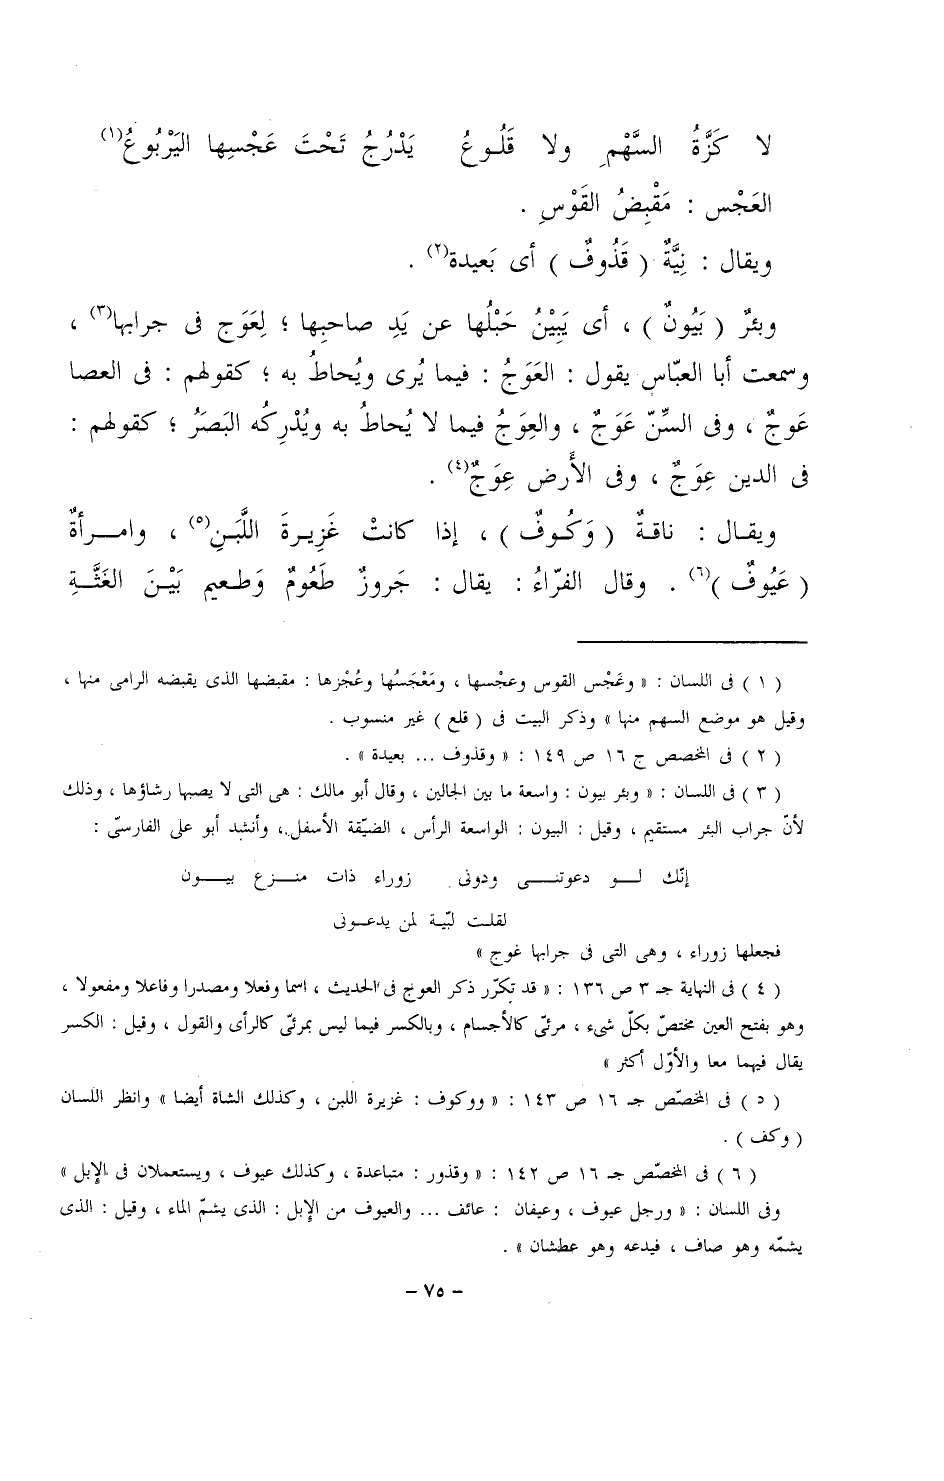 لا كَزَّةُ السَّهْمِ ولا قَلُوعُ يَدْرُجُ تَحْتَ عَجْسِها اليَرْبُوعُ(١)
العَجْس : مَقْبِضُ القَوْسِ .
ويقال : نِيَّةٌ ( قَذُوفٌ ) أى بَعيدة(٢) .
وبئرٌ ( بَيُونٌ ) ، أى يَبِيْنُ حَبْلُها عن يَدِ صاحبِها ؛ لِعَوَج فى جرابها(٣) ،
وسمعت أبا العبّاس يقول : العَوَجُ : فيما يُرى ويُحاطُ به ؛ كقولهم : فى العصا
عَوجٌ ، وفى السِّنّ عَوَجٌ ، والعِوَجُ فيما لا يُحاطُ به ويُدْرِكُه البَصَرُ ؛ كقولهم :
فى الدين عِوَجٌ ، وفى الأَرض عِوَجٌ(٤) .
ويقال : ناقةٌ ( وَكُوفٌ ) ، إذا كانتْ غَزِيرةَ اللَّبَنِ(٥) ، وامرأةٌ
( عَيُوفٌ )(٦) . وقال الفرّاءُ : يقال : جَروزٌ طَعُومٌ وَطعيم بَيْنَ الغَثَّةِ
( ١ ) فى اللسان : « وعَجْس القوس وعجسها ، ومَعْجَسُها وعُجْزها : مقبضها الذى يقبضه الرامى منها ،
وقيل هو موضع السهم منها » وذكر البيت فى ( قلع ) غير منسوب .
( ٢ ) فى المخصص ج ١٦ ص ١٤٩ : « وقذوف ... بعيدة » .
( ٣ ) فى اللسان : « وبئر بيون : واسعة ما بين الجالين ، وقال أبو مالك : هى التى لا يصبها رشاؤها ، وذلك
لأنّ جراب البئر مستقيم ، وقيل : البيون : الواسعة الرأس ، الضيّقة الأسفل ، وأنشد أبو على الفارسىّ :
إنّك لو دعوتنى ودونى زوراء ذات منزع بيون
لقلت لبّية لمن يدعونى
فجعلها زوراء ، وهى التى فى جرابها عوج »
( ٤ ) فى النهاية جـ ٣ ص ١٣٦ : « قد تكرّر ذكر العوج فى الحديث ، اسما وفعلا ومصدرا وفاعلا ومفعولا ،
وهو بفتح العين مختصّ بكلّ شىء ، مرئىّ كالأجسام ، وبالكسر فيما ليس بمرئىّ كالرأى والقول ، وقيل : الكسر
يقال فيهما معا والأوّل أكثر »
( ٥ ) فى المخصّص جـ ١٦ ص ١٤٣ : « ووكوف : غزيرة اللبن ، وكذلك الشاة أيضا » وانظر اللسان
( وكف ) .
( ٦ ) فى المخصّص جـ ١٦ ص ١٤٢ : « وقذور : متباعدة ، وكذلك عيوف ، ويستعملان فى الإبل »
وفى اللسان : « ورجل عيوف ، وعيفان : عائف ... والعيوف من الإبل : الذى يشمّ الماء ، وقيل : الذى
يشمّه وهو صاف ، فيدعه وهو عطشان » .
– ٧٥ –